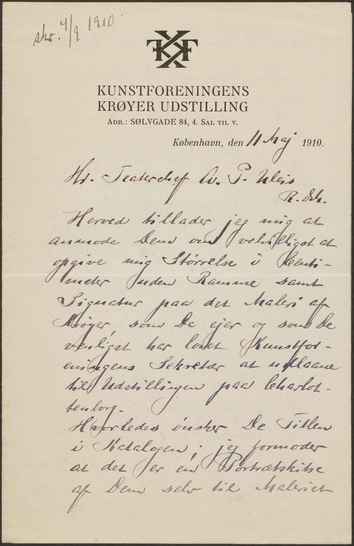 skr. 4/9 1910.
KKF
KUNSTFORENINGENS
KRØYER UDSTILLING
ADR.: SØLVGADE 84, 4. SAL TIL V.
København, den 11 Maj 1910.
Hr. Teaterchef Cv. P. Weis
R. Dbr.
Herved tillader jeg mig at
anmode Dem om velvilligst at
opgive mig Størrelse i Centi-
meter uden Ramme samt
Signatur paa det Maleri af
Krøyer, som De ejer og som De
venligst har lovet Kunstfor-
eningens Sekretær at udlaane
til Udstillingen paa Charlot-
tenborg.
Hvorledes ønsker De Titlen
i Kataloget; jeg formoder
at det er en Portrætskitse
af Dem selv til Maleriet